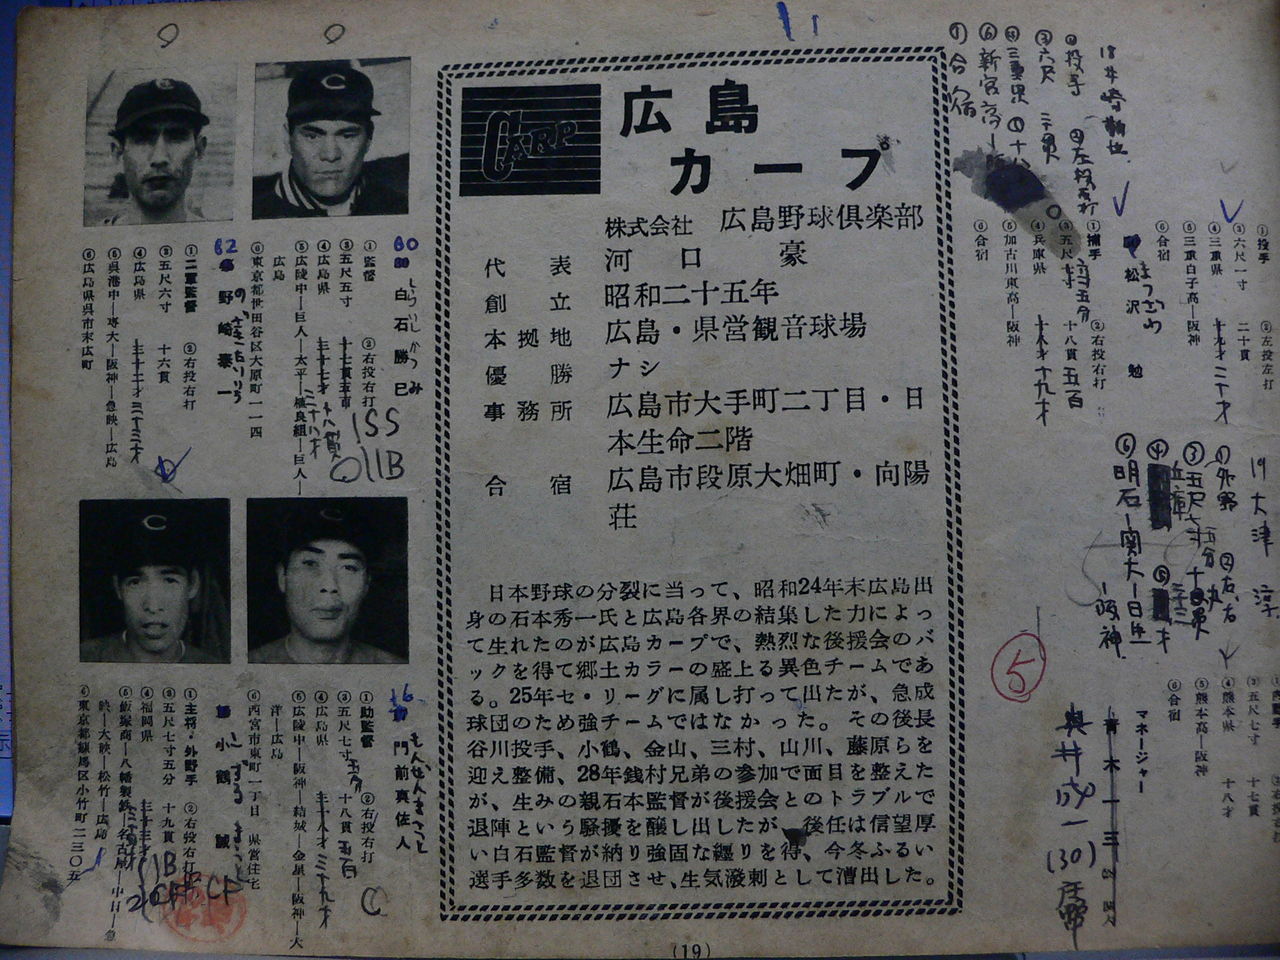 広島
カープ
CARP
株式会社 広島野球倶楽部
代表 河口豪
創立 昭和二十五年
本拠地 広島・県営観音球場
優勝 ナシ
事務所 広島市大手町二丁目・日
本生命二階
合宿 広島市段原大畑町・向陽
荘
日本野球の分裂に当って、昭和24年末広島出
身の石本秀一氏と広島各界の結集した力によっ
て生れたのが広島カープで、熱烈な後援会のバ
ックを得て郷土カラーの盛上る異色チームであ
る。25年セ・リーグに属し打って出たが、急成
球団のため強チームではなかった。その後長
谷川投手、小鶴、金山、三村、山川、藤原らを
迎え整備、28年銭村兄弟の参加で面目を整えた
が、生みの親石本監督が後援会とのトラブルで
退陣という騒擾を醸し出したが、後任は信望厚
い白石監督が納り強固な纒りを得、今冬ふるい
選手多数を退団させ、生気潑剌として漕出した。
(19)
60 白石勝巳
しらいしかつみ
①監督 ②右投右打
③五尺五寸
④広島県
⑤広陵中―巨人―太平―植良組―巨人―
広島
⑥東京都世田谷区大原町一一一四
1SS
011B
62 野崎泰一
①二軍監督 ②右投右打
③五尺六寸 十六貫
④広島県 三十三才
⑤呉港中―専大―阪神―急映―広島
⑥広島県呉市末広町
16 門前真佐人
もんぜんまさと
①助監督 ②右投右打
③五尺七寸五分 十八貫五百
④広島県 三十八才 三十九才
⑤広陵中―阪神―結城―金星―阪神―大
洋―広島
⑥西宮市東町一丁目 県営住宅
小鶴誠
こづるまこと
①主将・外野手 ②右投右打
③五尺七寸五分 十九貫
④福岡県
⑤飯塚商―八幡製鉄―名古屋―中日―急
映―大映―松竹―広島
⑥東京都練馬区小竹町二三〇五
①投手 ②左投左打
③六尺一寸 二十貫
④三重県 十九才 二十才
⑤三重白子高―阪神
⑥合宿
松沢勉
まつざわ
①捕手 ②右投右打
③五尺 十八貫五百
④兵庫県 十八才 十九才
⑤加古川東高―阪神
⑥合宿
①投手 ②左投左打
③六尺
④三重県
⑥新宮高
合宿
19 大津淳
①外野 ②右、右
③五尺七寸五分
④兵庫
⑥明石―関大―日生
―阪神
③五尺七寸 十七貫
④熊本県 十八才
⑤熊本高―阪神
⑥合宿
マネージャー
青木一三
奥井成一(30)
5